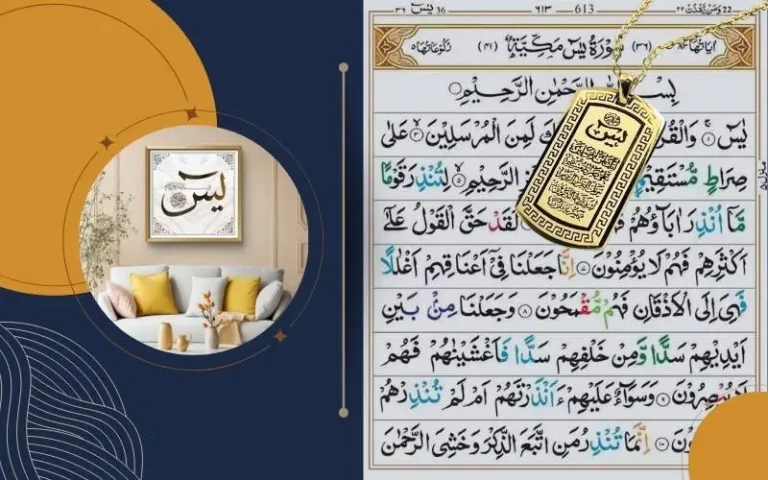 ٣٦ يٰسٓ 36
٦١٣
613
٢٢ وَمَنْ يَّقْنُتْ 22
اٰيَاتُهَا ٨٣ (٣٦) سُوْرَةُ يٰسٓ مَكِّيَّةٌ (٤١) رُكُوْعَاتُهَا ٥
بِسْمِ اللّٰهِ الرَّحْمٰنِ الرَّحِيْمِ
يٰسٓ ۝١ لَمِنَ الْمُرْسَلِيْنَ ۝٣ عَلٰى
صِرَاطٍ مُّسْتَقِيْمٍ الرَّحِيْمِ ۝٥ لِتُنْذِرَ قَوْمًا
مَّاۤ اُنْذِرَ اٰبَآؤُهُمْ لَقَدْ حَقَّ الْقَوْلُ عَلٰٓى
اَكْثَرِهِمْ فَهُمْ لَا يُؤْمِنُوْنَ ۝٧ اِنَّا جَعَلْنَا فِيْۤ اَعْنَاقِهِمْ اَغْلٰلًا
فَهِيَ اِلَى الْاَذْقَانِ فَهُمْ مُّقْمَحُوْنَ ۝٨ وَجَعَلْنَا مِنْۢ بَيْنِ
اَيْدِيْهِمْ سَدًّا وَّمِنْ خَلْفِهِمْ سَدًّا فَاَغْشَيْنٰهُمْ فَهُمْ
لَا يُبْصِرُوْنَ ۝٩ وَسَوَآءٌ عَلَيْهِمْ ءَاَنْذَرْتَهُمْ اَمْ لَمْ تُنْذِرْهُمْ
۝١٠ اِنَّمَا تُنْذِرُ مَنِ اتَّبَعَ الذِّكْرَ وَخَشِيَ الرَّحْمٰنَ
يٰسٓ
يٰسٓ